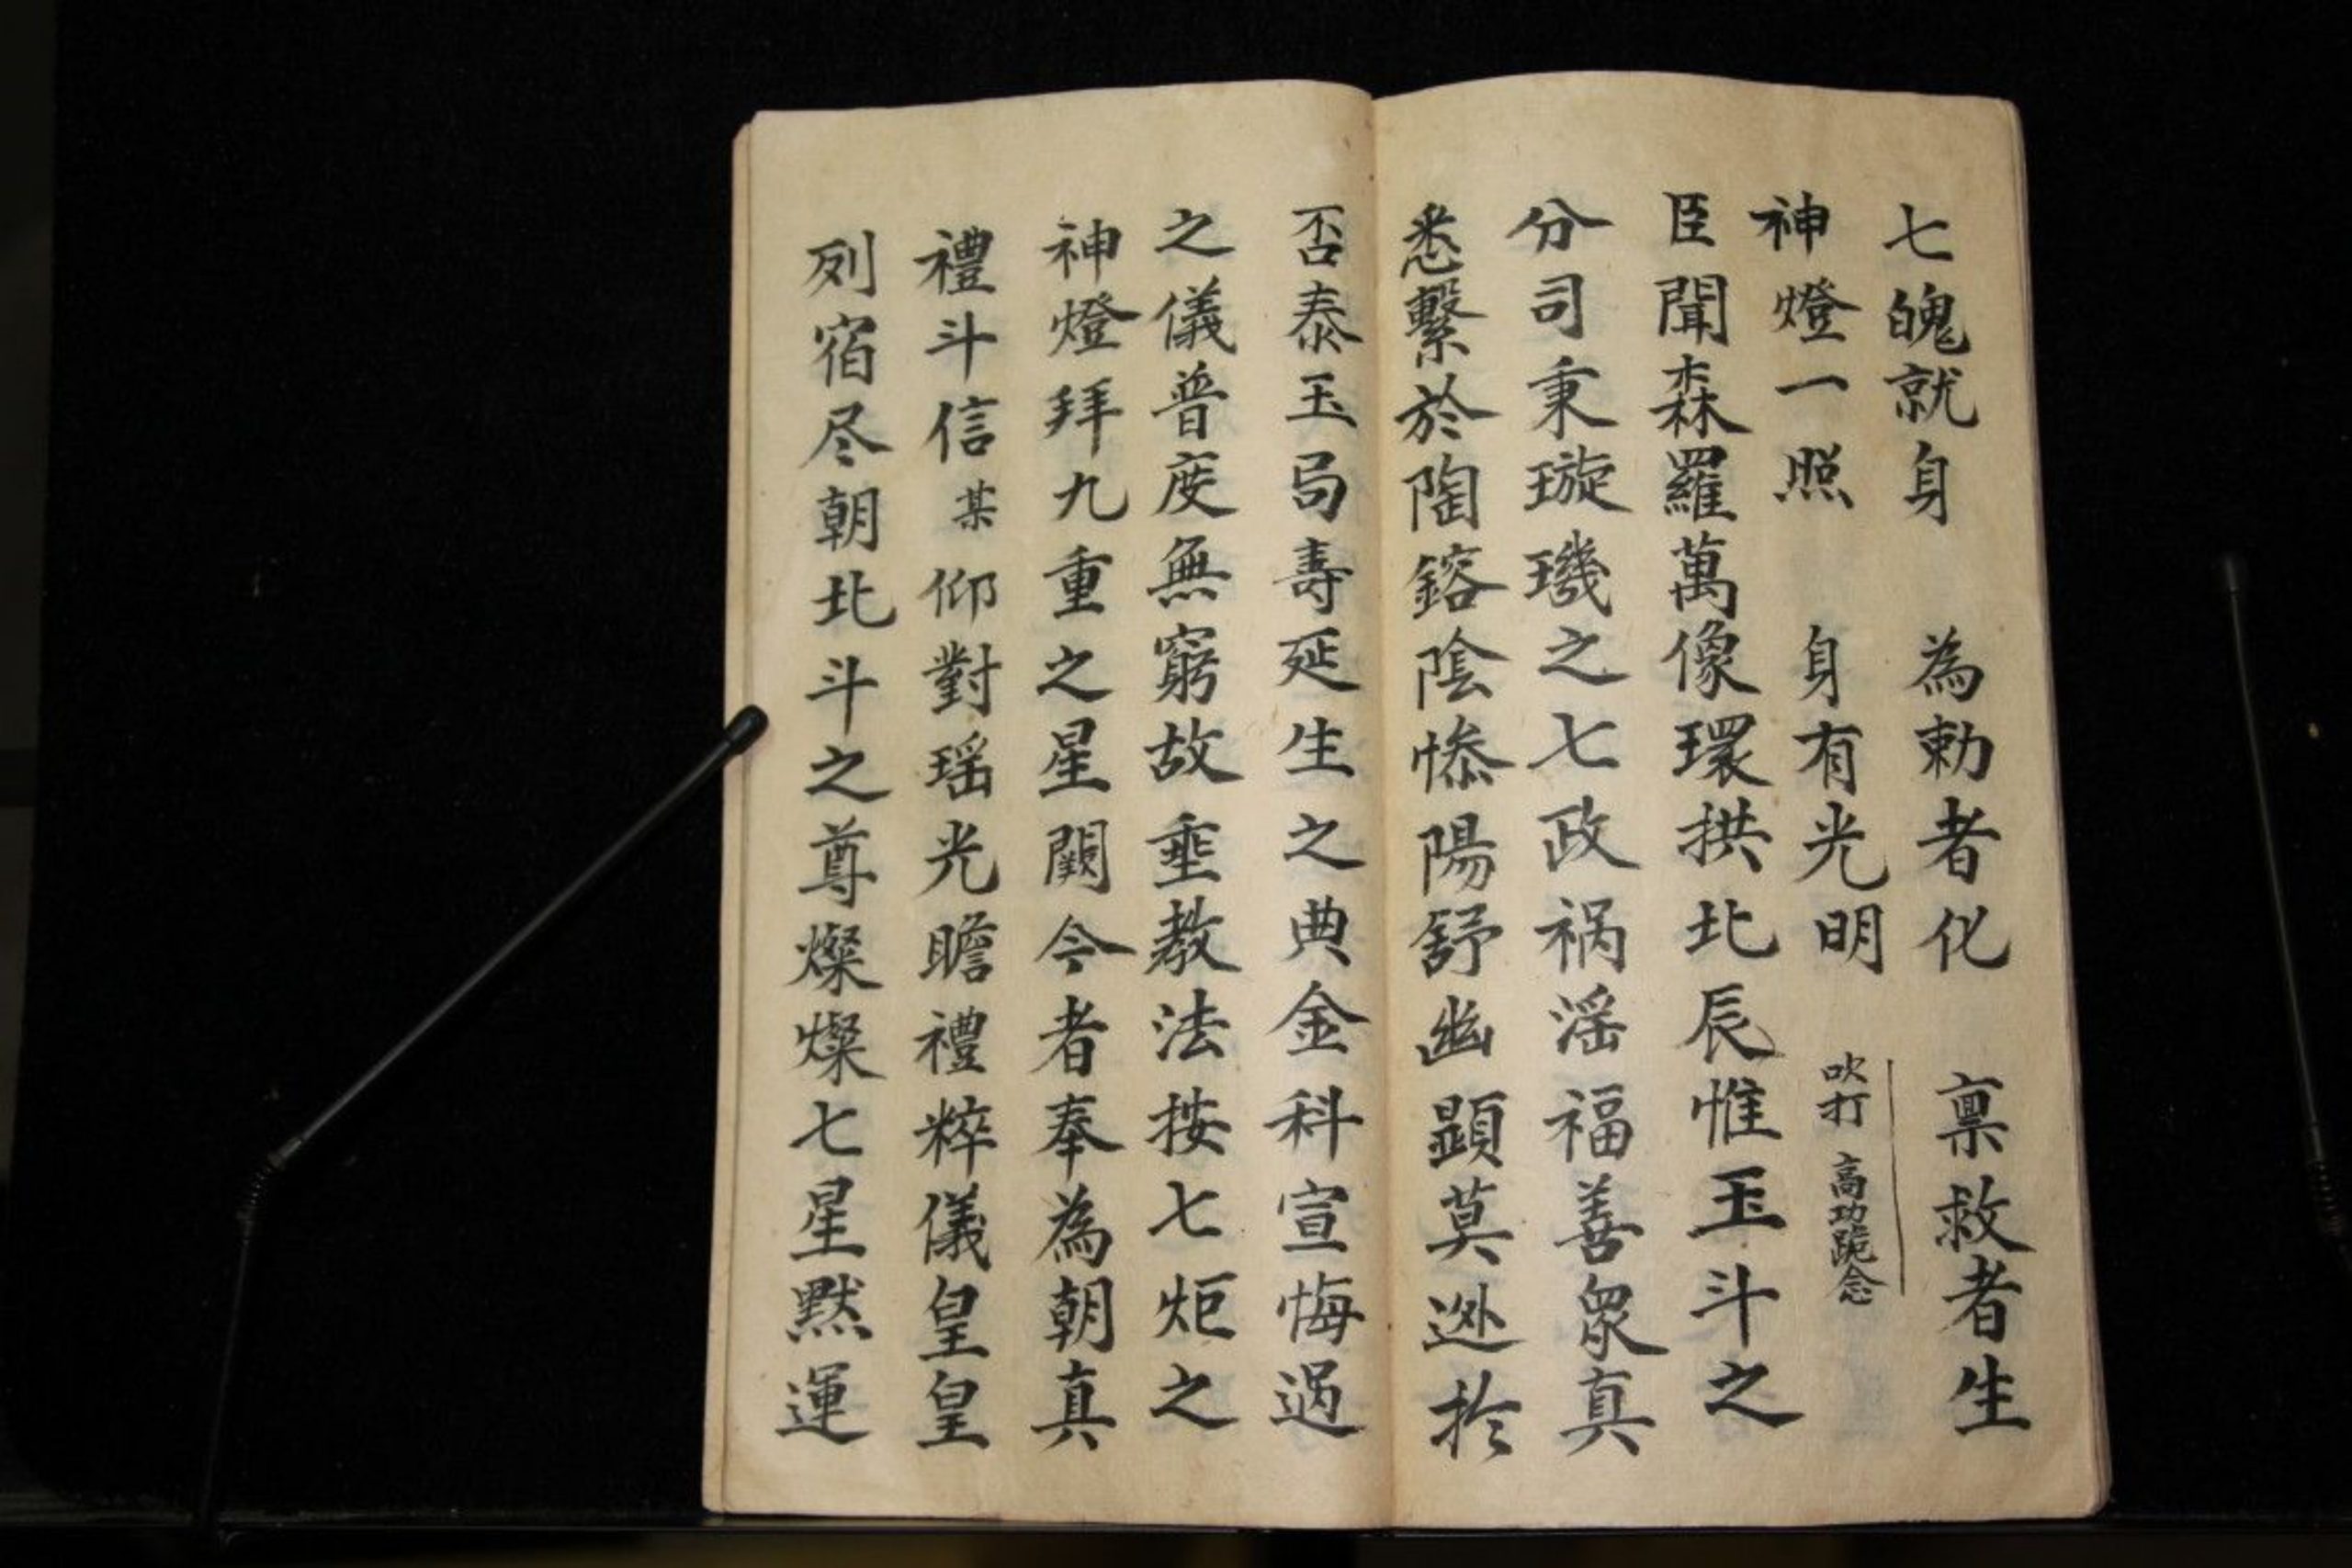 七魄就身　為勅者化　禀救者生
神燈一照　身有光明　吹打 高功跪念
臣聞森羅萬像環拱北辰惟玉斗之
分司秉璇璣之七政祸淫福善衆真
悉繫於陶鎔陰慘陽舒幽顕莫逃於
否泰玉局壽延生之典金科宣悔过
之儀普度無窮故垂教法按七炬之
神燈拜九重之星闕今者奉為朝真
禮斗信某仰對瑶光瞻禮粹儀皇皇
列宿尽朝北斗之尊燦燦七星黙運